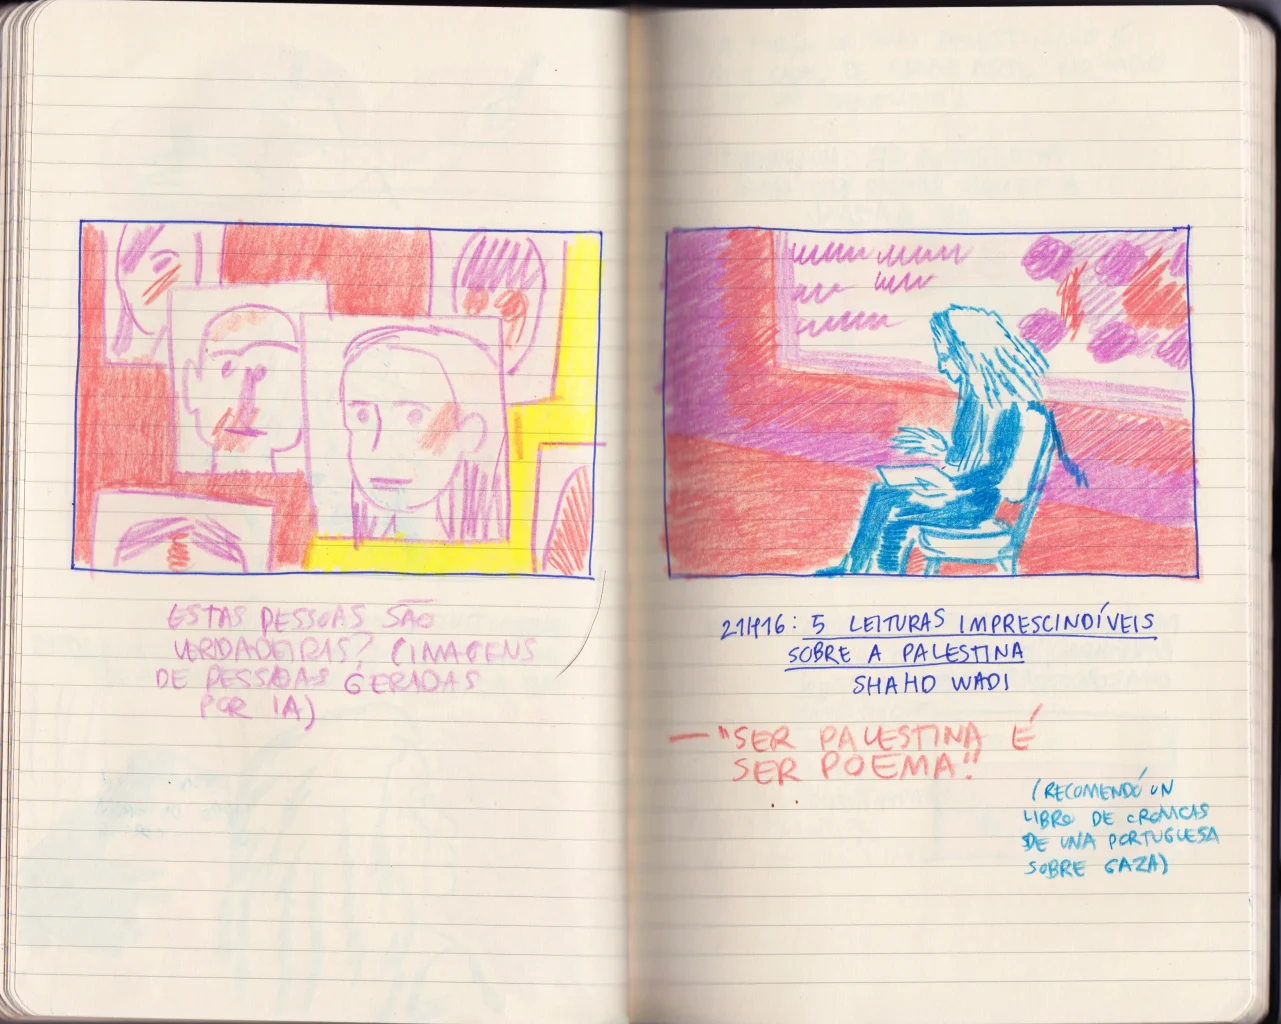 ESTAS PESSOAS SÃO
VERDADEIRAS? (IMAGENS
DE PESSOAS GERADAS
POR IA)
21H16: 5 LEITURAS IMPRESCINDÍVEIS
SOBRE A PALESTINA
SHAHD WADI
— "SER PALESTINA É
SER POEMA".
(RECOMENDÓ UN
LIBRO DE CRONICAS
DE UNA PORTUGUESA
SOBRE GAZA)